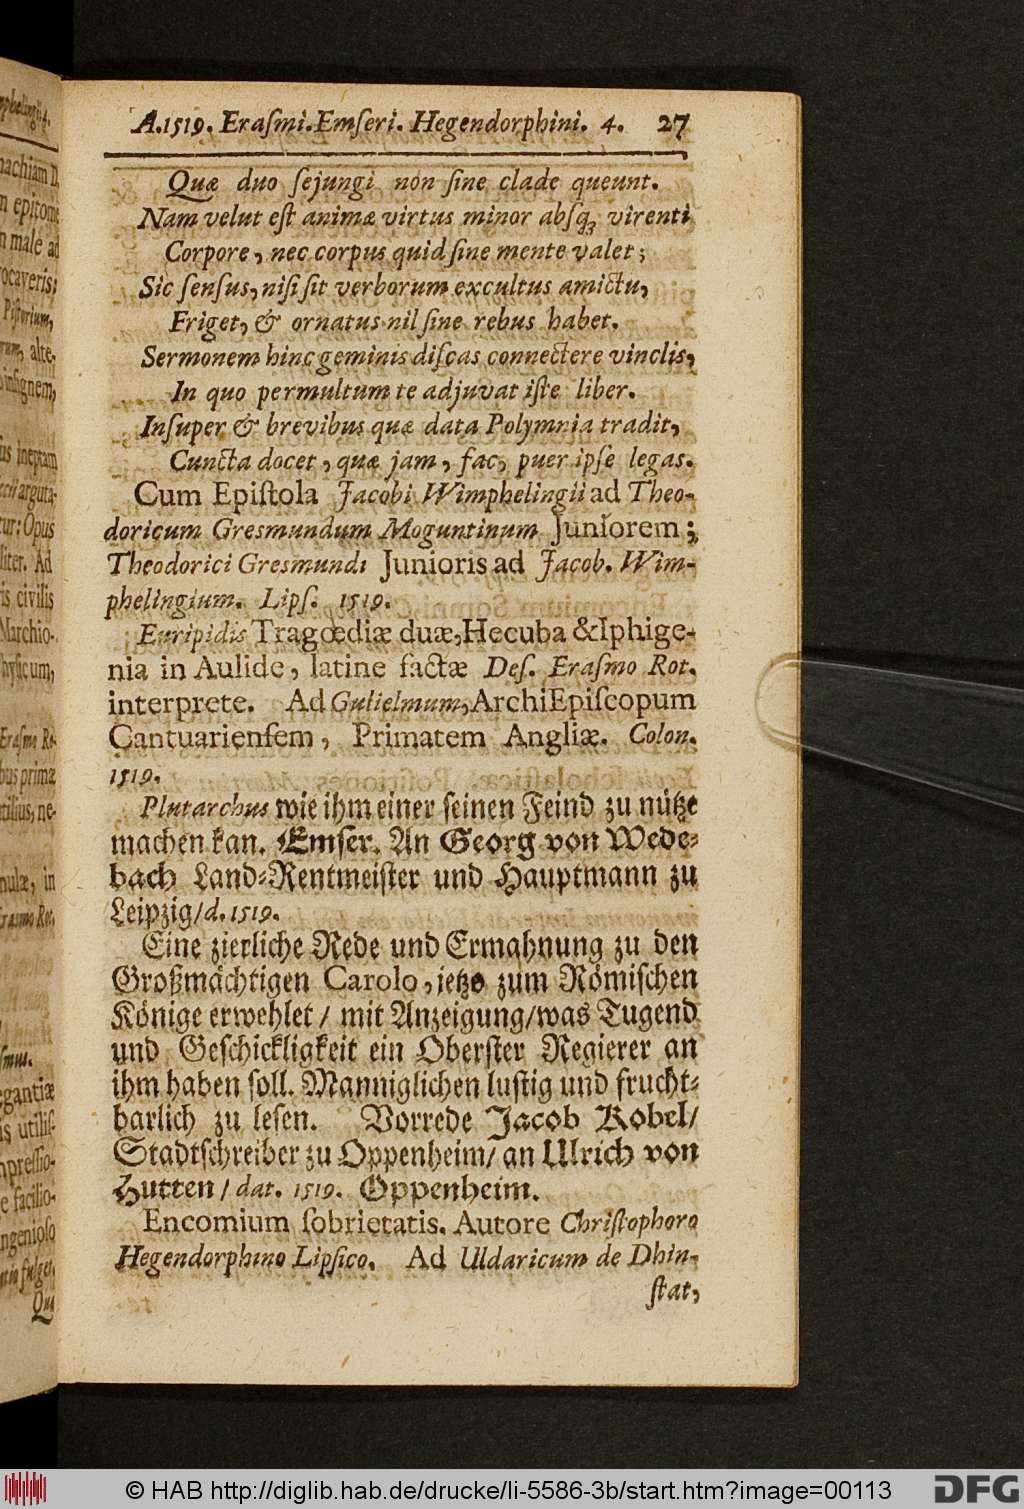 A.1519. Eraſmi. Emſeri. Hegendorphini. 4. 27
Quæ duo ſejungi non ſine clade queunt.
Nam velut eſt animæ virtus minor absq; virenti
Corpore, nec corpus quid ſine mente valet;
Sic ſenſus, niſi ſit verborum excultus amictu,
Friget, & ornatus nil ſine rebus habet.
Sermonem hinc geminis diſcas connectere vinclis,
In quo permultum te adjuvat iſte liber.
Inſuper & brevibus quæ data Polymnia tradit,
Cuncta docet, quæ jam, fac, puer ipſe legas.
Cum Epiſtola Jacobi Wimphelingii ad Theo-
doricum Gresmundum Moguntinum Juniorem;
Theodorici Gresmundi Junioris ad Jacob. Wim-
phelingium. Lipſ. 1519.
Euripidis Tragœdiæ duæ, Hecuba & Iphige-
nia in Aulide, latine factæ Deſ. Eraſmo Rot.
interprete. Ad Gulielmum, ArchiEpiſcopum
Cantuarienſem, Primatem Angliæ. Colon.
1519.
Plutarchus wie ihm einer ſeinen Feind zu nütze
machen kan. Emſer. An Georg von Wede-
bach Land-Rentmeiſter und Hauptmann zu
Leipzig/ d. 1519.
Eine zierliche Rede und Ermahnung zu den
Großmächtigen Carolo, jetzo zum Römiſchen
Könige erwehlet / mit Anzeigung/ was Tugend
und Geſchickligkeit ein Oberſter Regierer an
ihm haben ſoll. Manniglichen luſtig und frucht-
barlich zu leſen. Vorrede Jacob Kobel/
Stadtſchreiber zu Oppenheim/ an Ulrich von
Hutten / dat. 1519. Oppenheim.
Encomium ſobrietatis. Autore Chriſtophoro
Hegendorphino Lipſico. Ad Uldaricum de Dhin-
ſtat,
© HAB http://diglib.hab.de/drucke/li-5586-3b/start.htm?image=00113
DFG